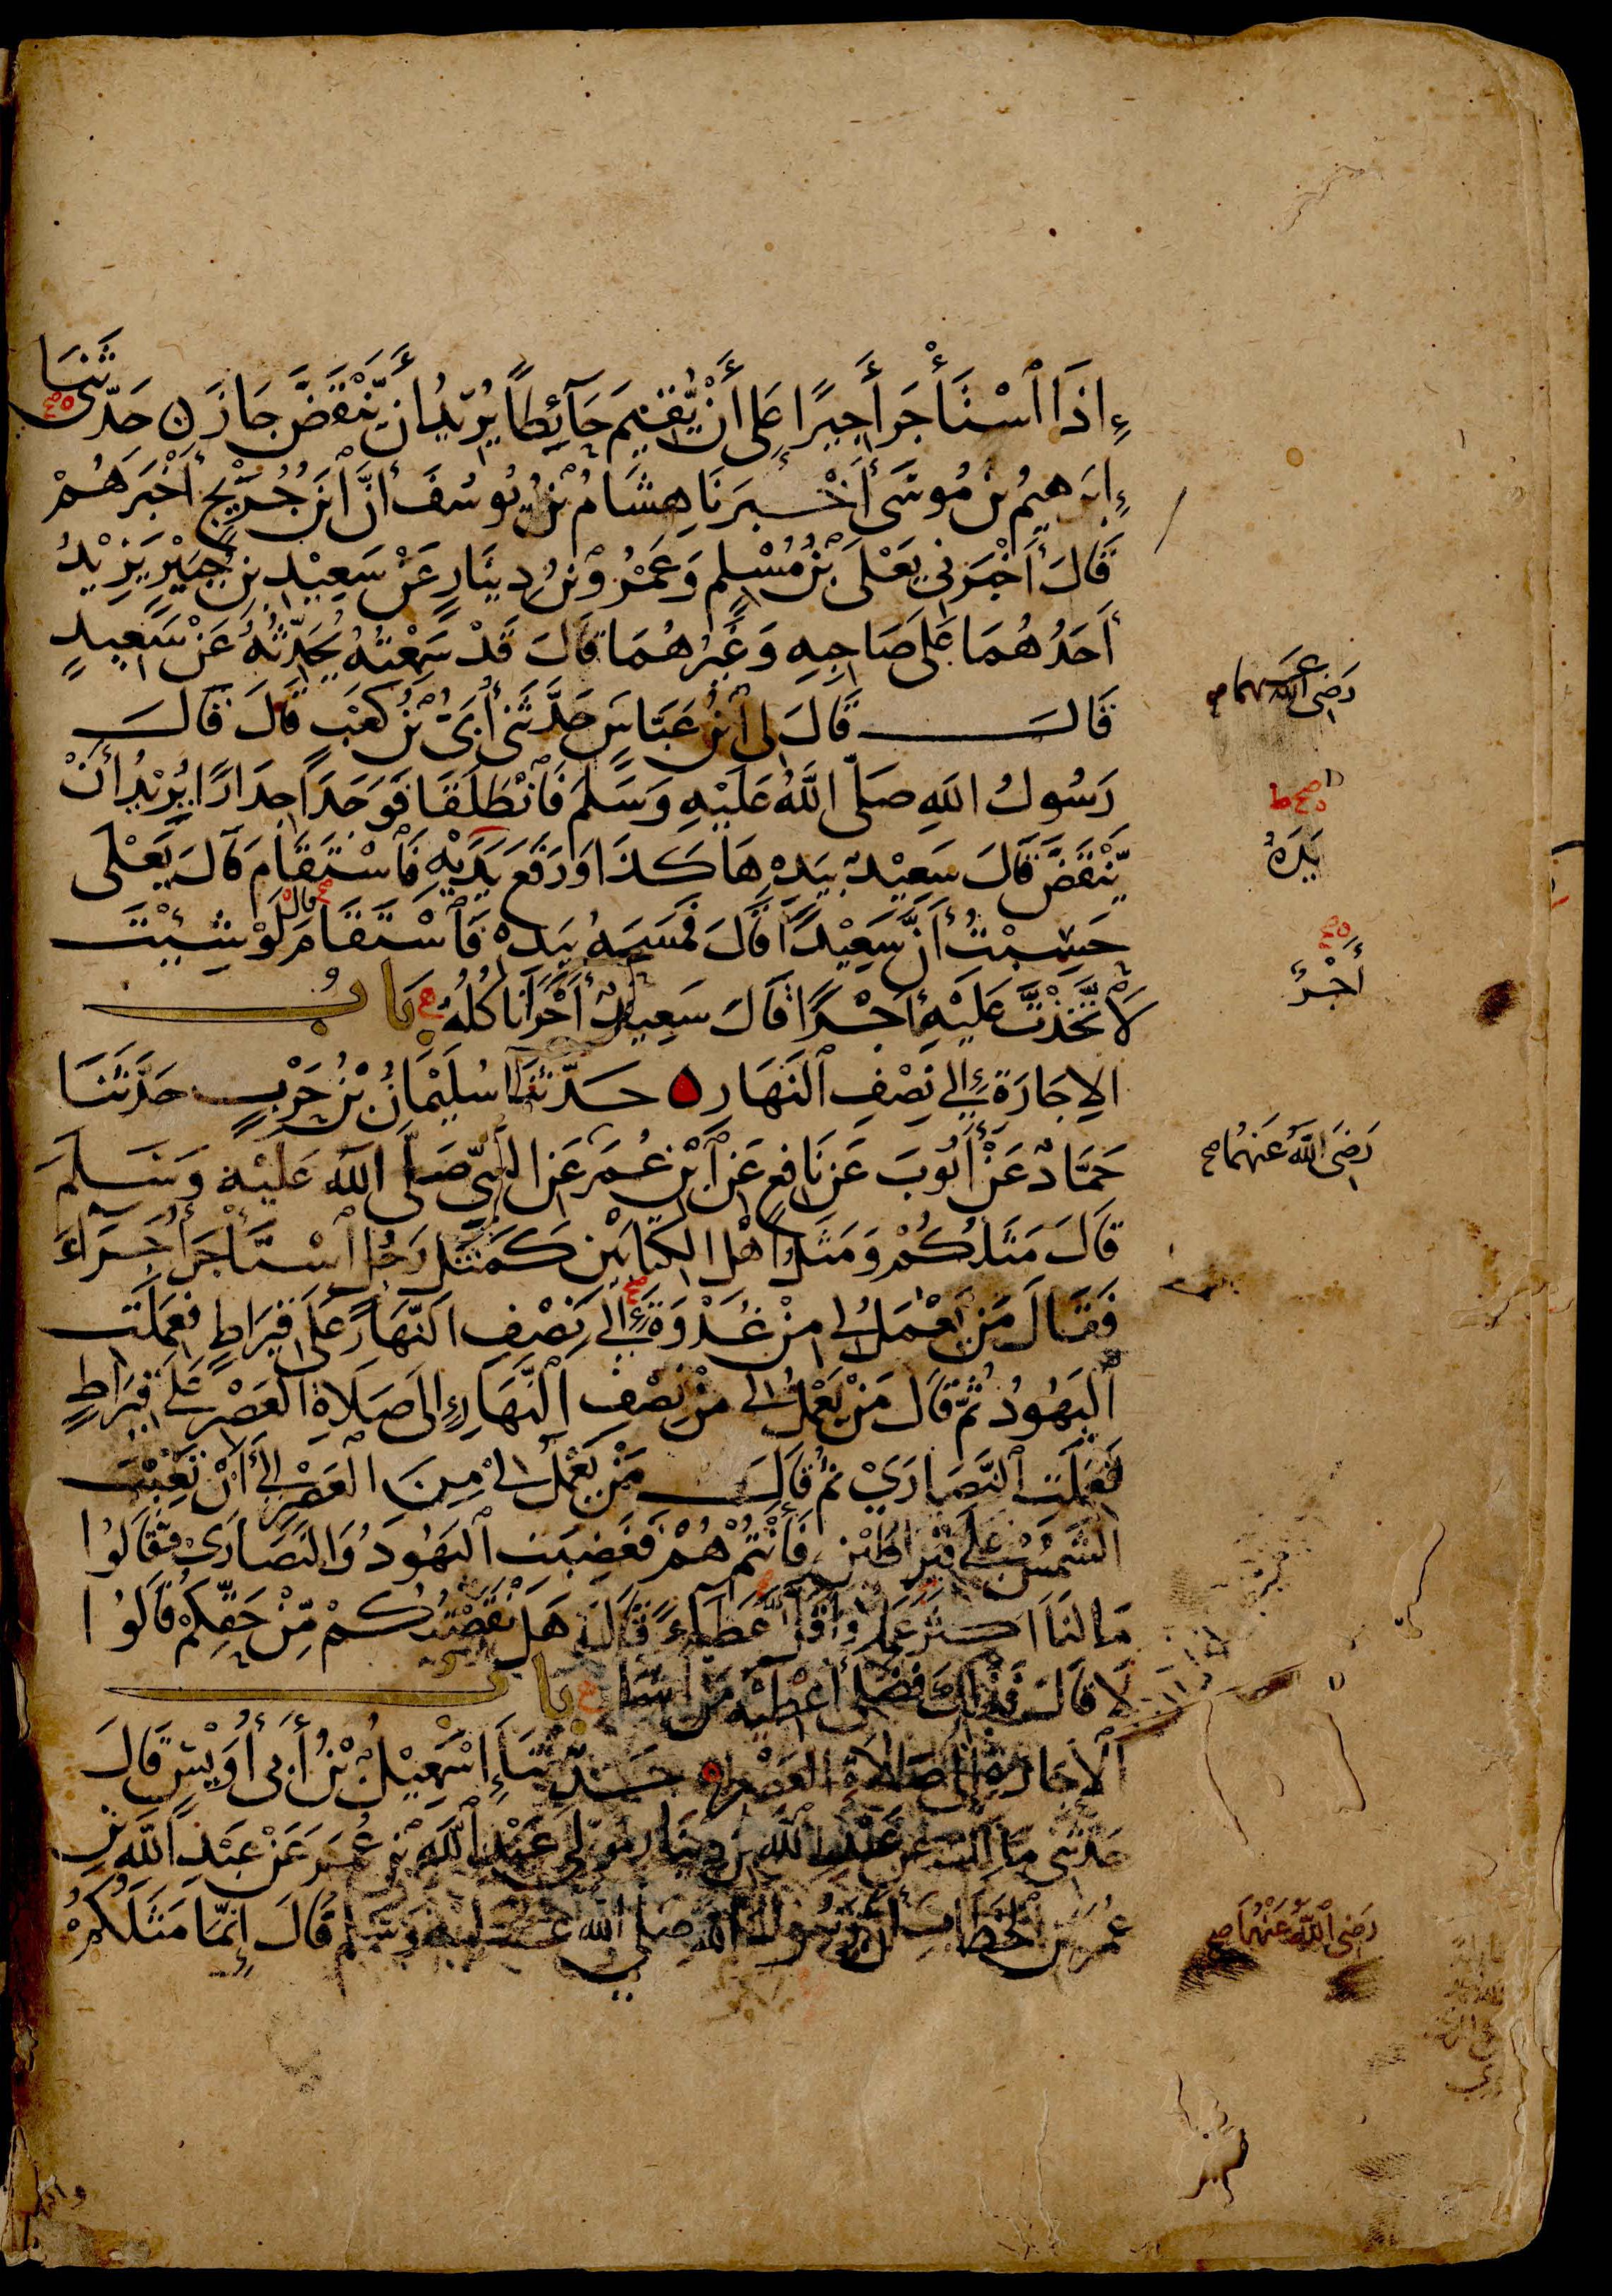 إِذَا ٱسْتَأْجَرَ أَجِيرًا عَلَى أَنْ يُّقِيمَ حَآئِطًا يُرِيدُ أَن يَّنْقَضَّ جَازَ ن حَدَّثَنَا
إِبْرَهِيمُ بْنُ مُوسَى أَخْبَرَنَا هِشَامُ بْنُ يُوسُفَ أَنَّ ٱبْنَ جُرَيْجٍ أَخْبَرَهُمْ
قَالَ أَخْبَرَنِي يَعْلَى بْنُ مُسْلِمٍ وَعَمْرُو بْنُ دِينَارٍ عَنْ سَعِيْدِ بْنِ جُبَيْرٍ يَزِيْدُ
أَحَدُهُمَا عَلَى صَاحِبِهِ وَغَيْرُهُمَا قَالَ قَدْ سَمِعْتُهُ يُحَدِّثُهُ عَنْ سَعِيدٍ
رَضِيَ اللهُ عَنْهُمَا صح
قَالَ قَالَ لِي ٱبْنُ عَبَّاسٍ حَدَّثَنِي أُبَيُّ بْنُ كَعْبٍ قَالَ قَالَ
رَسُولُ اللهِ صَلَّى اللَّهُ عَلَيْهِ وَسَلَّمَ فَٱنْطَلَقَا فَوَجَدَا جِدَارًا يُرِيْدُ أَنْ
يَّنْقَضَّ قَالَ سَعِيْدٌ بِيَدِهِ هَاكَذَا وَرَفَعَ يَدَيْهِ فَٱسْتَقَامَ قَالَ يَعْلَى
يَدَهُ
حَسِبْتُ أَنَّ سَعِيْدًا قَالَ فَمَسَحَهُ بِيَدِهِ فَٱسْتَقَامَ قال لَوْ شِئْتَ
أَجْرٌ
لَاتَّخَذْتَ عَلَيْهِ أَجْرًا قَالَ سَعِيدٌ أَجْرًا نَأْكُلُهُ بَابُ
الإِجَارَةِ إِلَى نِصْفِ ٱلنَّهَارِ ه حَدَّثَنَا سُلَيْمَانُ بْنُ حَرْبٍ حَدَّثَنَا
حَمَّادٌ عَنْ أَيُّوبَ عَنْ نَافِعٍ عَنِ ٱبْنِ عُمَرَ عَنِ النَّبِيِّ صَلَّى اللَّهُ عَلَيْهِ وَسَلَّمَ
رَضِيَ اللَّهُ عَنْهُمَا صح
قَالَ مَثَلُكُمْ وَمَثَلُ أَهْلِ الكِتَابَيْنِ كَمَثَلِ رَجُلٍ ٱسْتَأْجَرَ أُجَرَآءَ
فَقَالَ مَنْ يَعْمَلُ لِي مِنْ غُدْوَةٍ إِلَى نِصْفِ النَّهَارِ عَلَى قِيرَاطٍ فَعَمِلَتِ
ٱلْيَهُودُ ثُمَّ قَالَ مَنْ يَعْمَلُ لِي مِنْ نِصْفِ ٱلنَّهَارِ إِلَى صَلَاةِ العَصْرِ عَلَى قِيرَاطٍ
فَعَمِلَتِ ٱلنَّصَارَى ثُمَّ قَالَ مَنْ يَعْمَلُ لِي مِنَ العَصْرِ إِلَى أَنْ تَغِيْبَ
الشَّمْسُ عَلَى قِيْرَاطَيْنِ فَأَنْتُمْ هُمْ فَغَضِبَتِ ٱليَهُودُ وَالنَّصَارَى فَقَالُوا
مَا لَنَا أَكْثَرَ عَمَلًا وَأَقَلَّ عَطَآءً قَالَ هَلْ نَقَصْتُكُمْ مِّنْ حَقِّكُمْ قَالُوا
لَا قَالَ فَذَلِكَ فَضْلِي أُعْطِيْهِ مَنْ أَشَآءُ بَابُ
ٱلْإِجَارَةِ إِلَى صَلَاةِ العَصْرِ ه حَدَّثَنَا إِسْمَعِيْلُ بْنُ أَبِي أُوَيْسٍ قَالَ
حَدَّثَنِي مَالِكٌ عَنْ عَبْدِ اللَّهِ بْنِ دِينَارٍ مَوْلَى عَبْدِ ٱللَّهِ بْنِ عُمَرَ عَنْ عَبْدِ اللَّهِ بْنِ
عُمَرَ بْنِ ٱلْخَطَّابِ أَنَّ رَسُولَ اللهِ صَلَّى اللهُ عَلَيْهِ وَسَلَّمَ قَالَ إِنَّمَا مَثَلُكُمْ
رَضِيَ ٱللَّهُ عَنْهُمَا صح